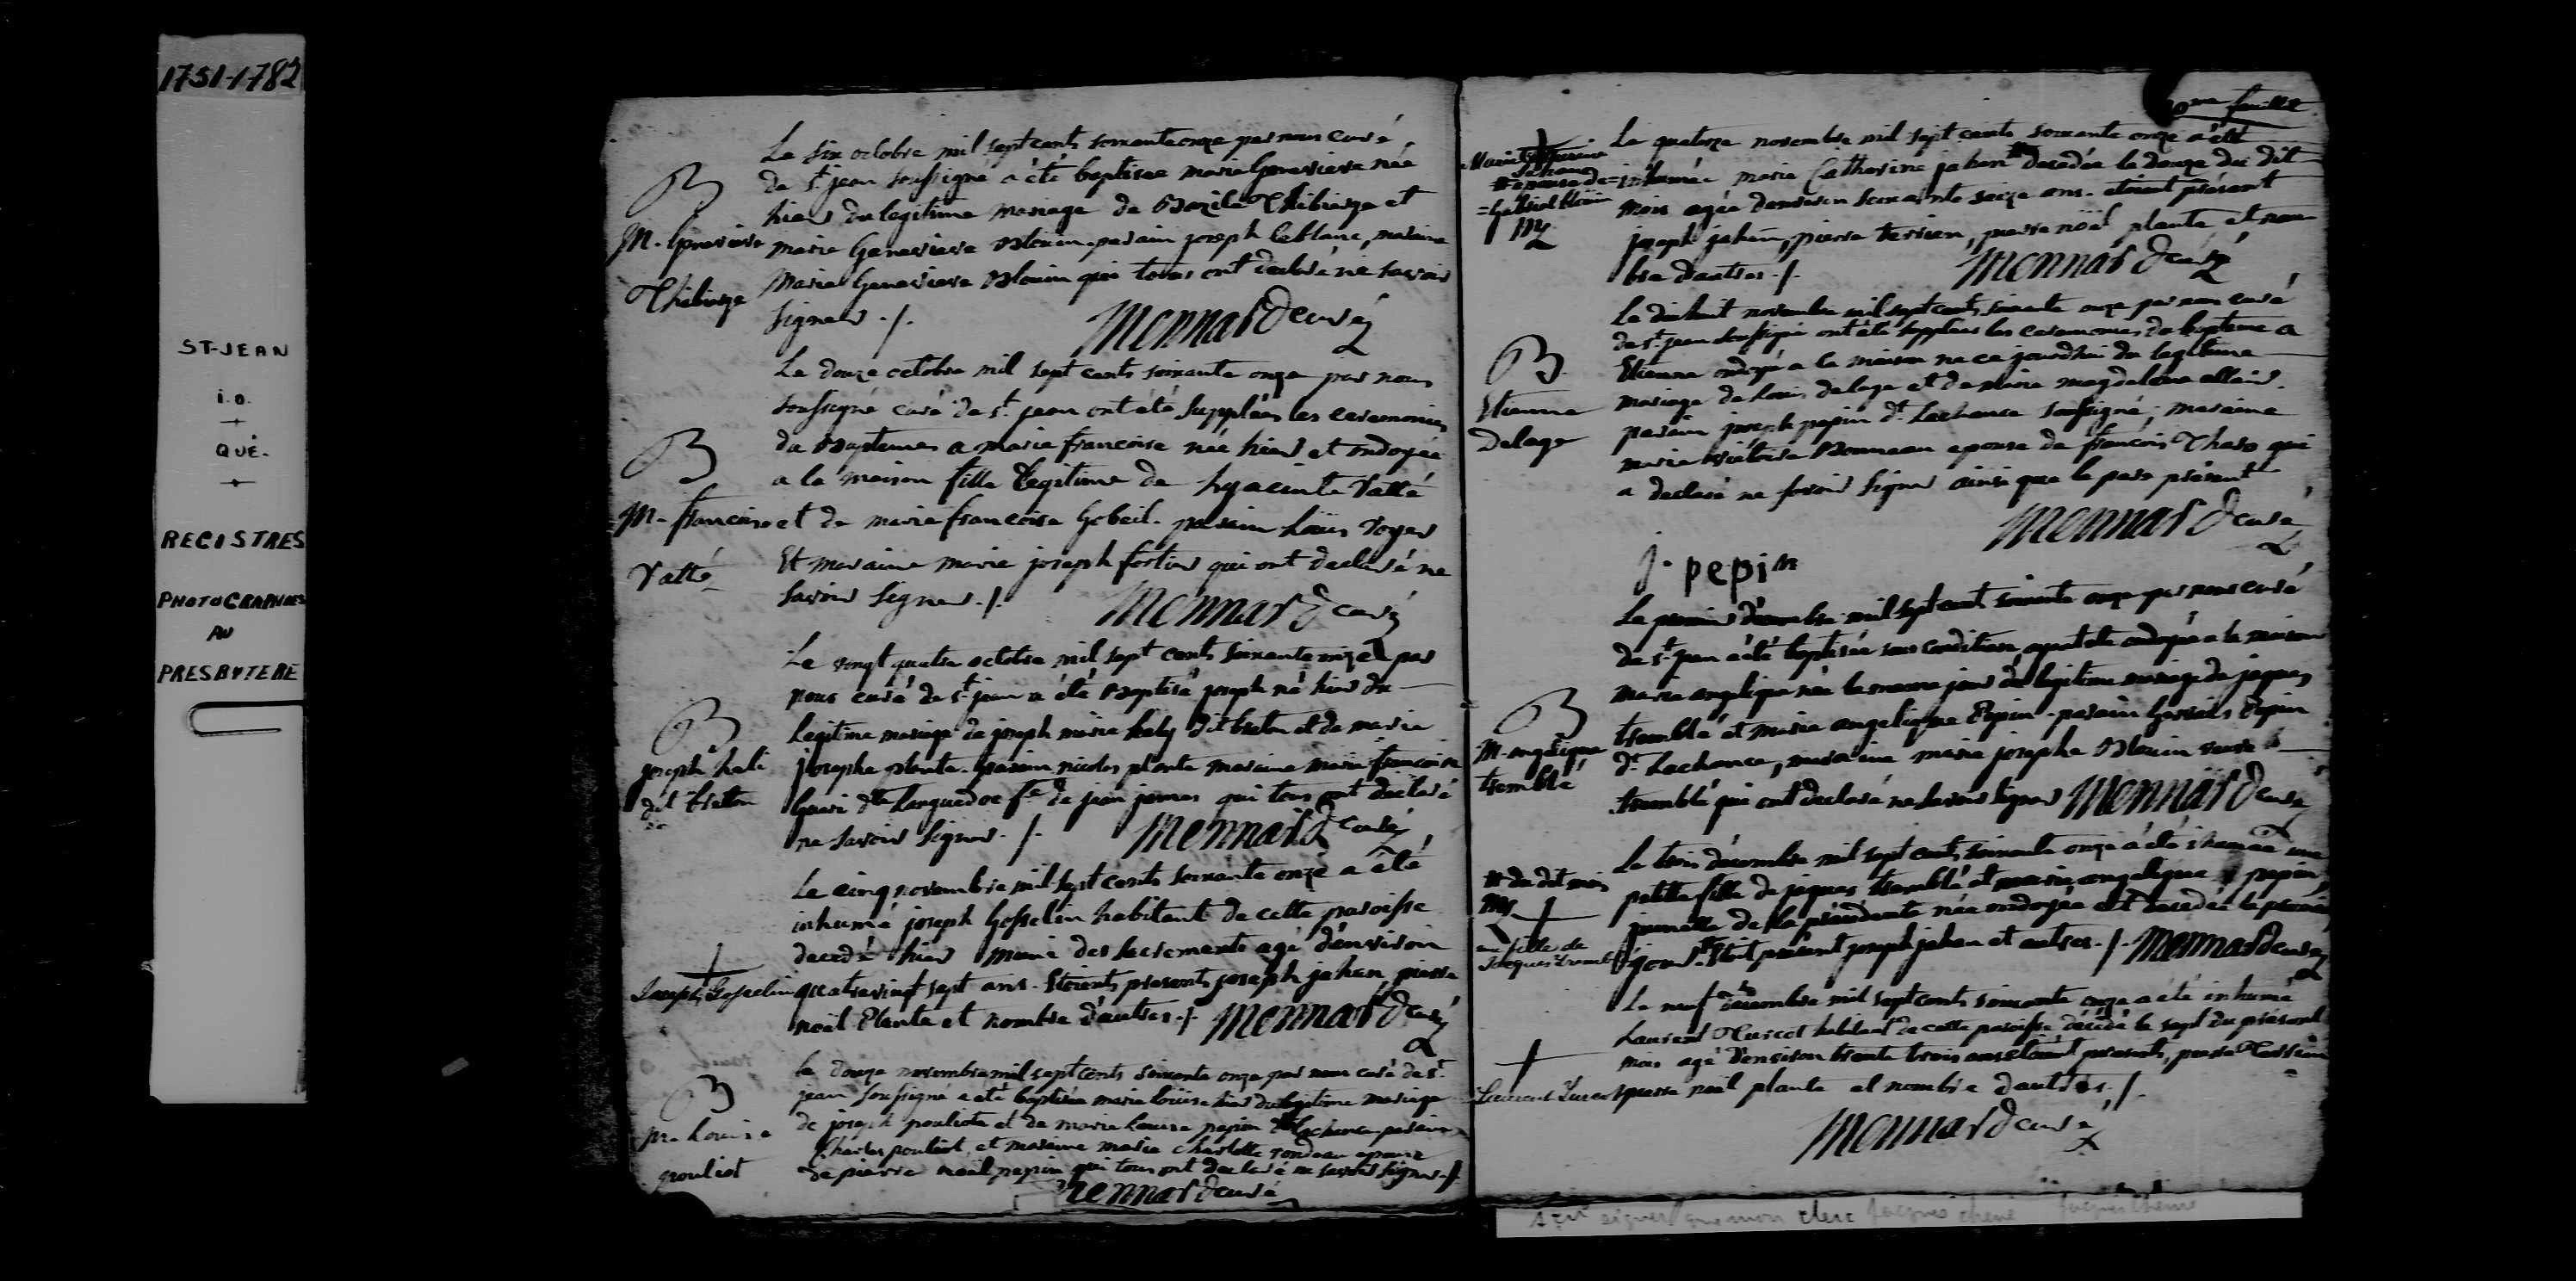 1751-1782
ST-JEAN
i.o.
QUÉ.
REGISTRES
PHOTOGRAPHIES
AU
PRESBYTERE
Le six octobre mil sept cents soixante onze par nous curé
de St. jean soussigné a été baptisée marie Genevieve née
hier du legitime mariage de Bazile Thibierge et
marie Genevieve Blouin. parain joseph leblanc, maraine
marie Genevieve Blouin qui tous ont declaré ne savoir
signer ./.
Mennard curé
B
M. Genevieve
Thibierge
Le douze octobre mil sept cents soixante onze par nous
soussigné curé de St. jean ont été supplées les ceremonies
du Bapteme a marie françoise née hier et ondoyée
a la maison fille legitime de hyacinte Vallé
et de marie françoise Gobeil. parain Louis Royer
Et maraine marie joseph fortier qui ont declaré ne
savoir signer ./.
Mennard curé
B
M. françoise
Vallé
Le vingt quatre octobre mil sept cents soixante onze par
nous curé de St. jean a été Baptisé joseph né hier du
legitime mariage de joseph marie hely dit breton et de marie
josephe plante. parain nicolas plante maraine marie françoise
dte Languedoc fe. de jean james qui tous ont declaré
ne savoir signer. /.
Mennard curé
B
joseph heli
dit breton
Le cinq novembre mil sept cents soixante onze a été
inhumé joseph Gosselin habitant de cette paroisse
decedé hier muni des sacrements agé d'environ
quatrevingt sept ans. Etoient presents joseph jahan pierre
noël Plante et nombre d'autres ./.
Mennard curé
Joseph Gosselin
le douze novembre mil sept cents soixante onze par nous curé de St.
jean soussigné a été baptisée marie Louise née hier du legitime mariage
de joseph pouliote et de marie Louise pepin Lachance. parain
Charles pouliot, et maraine marie charlotte rondeau epouse
de pierre noël pepin qui tous ont declaré ne savoir signer ./.
Mennard curé
B
M. Louise
pouliot
feuillet
Le quatorze novembre mil sept cents soixante onze a été
inhumée marie Catherine jahan # decedée le douze du dit
mois agée d'environ soixante seize ans. etoient présent
joseph jahan, pierre terrien, pierre noël plante et nom
bre d'autres ./.
Mennard curé
# epouse de
Gabriel blouin
Le dixhuit novembre mil sept cents soixante onze par nous curé
de St. jean soussigné ont été supplées les ceremonies du bapteme a
Etienne ondoyé a la maison né ce jourdhui du legitime
mariage de Louis delage et de marie magdelaine allaire.
parain joseph pepin dt. Lachance soussigné; maraine
marie Bonneau epouse de françois qui
a declaré ne savoir signer ainsi que le pere présent
Mennard curé
j. pepin
B
Etienne
delage
Le premier décembre mil sept cent soixante onze par nous curé
de St. jean a été baptisée sous condition ayant été ondoyée a la maison
marie angelique née le meme jour du legitime mariage de jaques
tremblé et marie angelique Pepin. parain Gervais Pepin
dt. Lachance, maraine marie josephe Blouin veuve
tremblé qui ont declaré ne savoir signer
Mennard curé
B
M. angelique
tremblé
Le trois décembre mil sept cents soixante onze a été inhumée une
petite fille de jaques tremblé et marie angelique pepin
jumelle de la précédente née ondoyée et decedée le premier
jour # Etoit présent joseph jahan et autres ./. Mennard curé
# du dit mois
une fille de
Jacques trembl
Le neuf décembre mil sept cents soixante onze a été inhumé
Laurent Turcot habitant de cette paroisse décédé le sept du présent
mois agé d'environ trente trois ans. etoient presents, pierre Terrien
pierre noël plante et nombre d'autres ./.
Mennard curé
Laurent Turcot
clerc